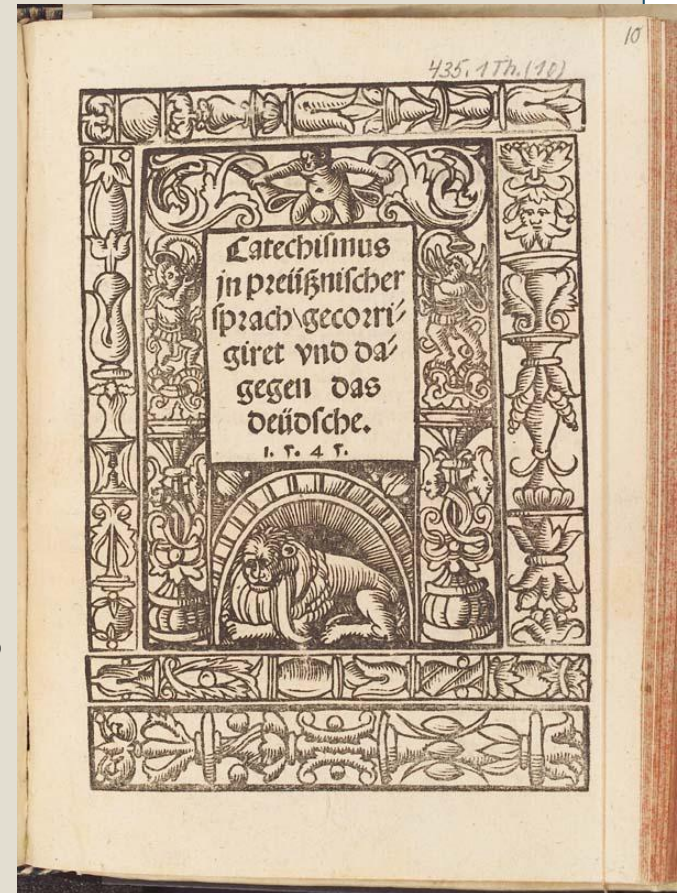 10
435. 1 Th. (10)
Catechismus
jn preüßnischer
sprach\gecorri⸗
giret vnd da⸗
gegen das
deüdsche.
1. 5. 4 5.